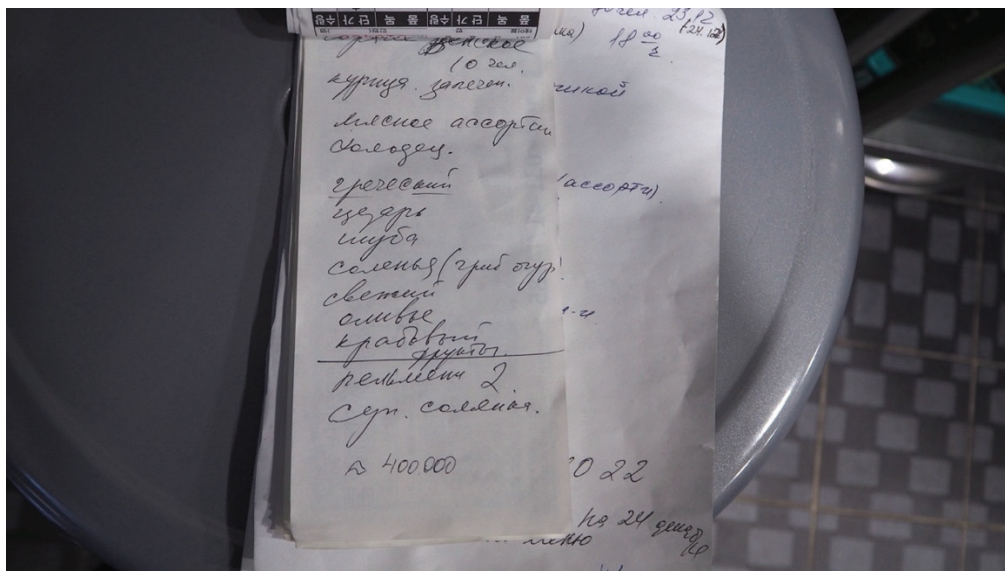 품 목 단 가 수량 품 목 단 가 수량
женское
10 чел.
курица запечен.
мясное ассорти
холодец.
греческий
цезарь
шуба
соленья (гриб огур
свежий
оливье
крабовый
фрукты.
пельмени 2.
суп. солянка.
400000
чел. 23.12
(24.12)
18 00
ка)
чиной
(ассорти).
и-и
22
на 24 декабря
меню